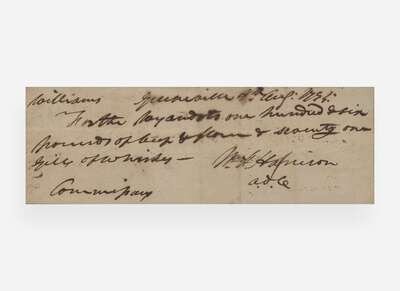 Williams Greenville Augt. 1795
For the Wyandots one hundred & six
pounds of beef & flour & seventy one
Gills of Whisky —
Wm. H. Harrison
Commissary
a.d.C